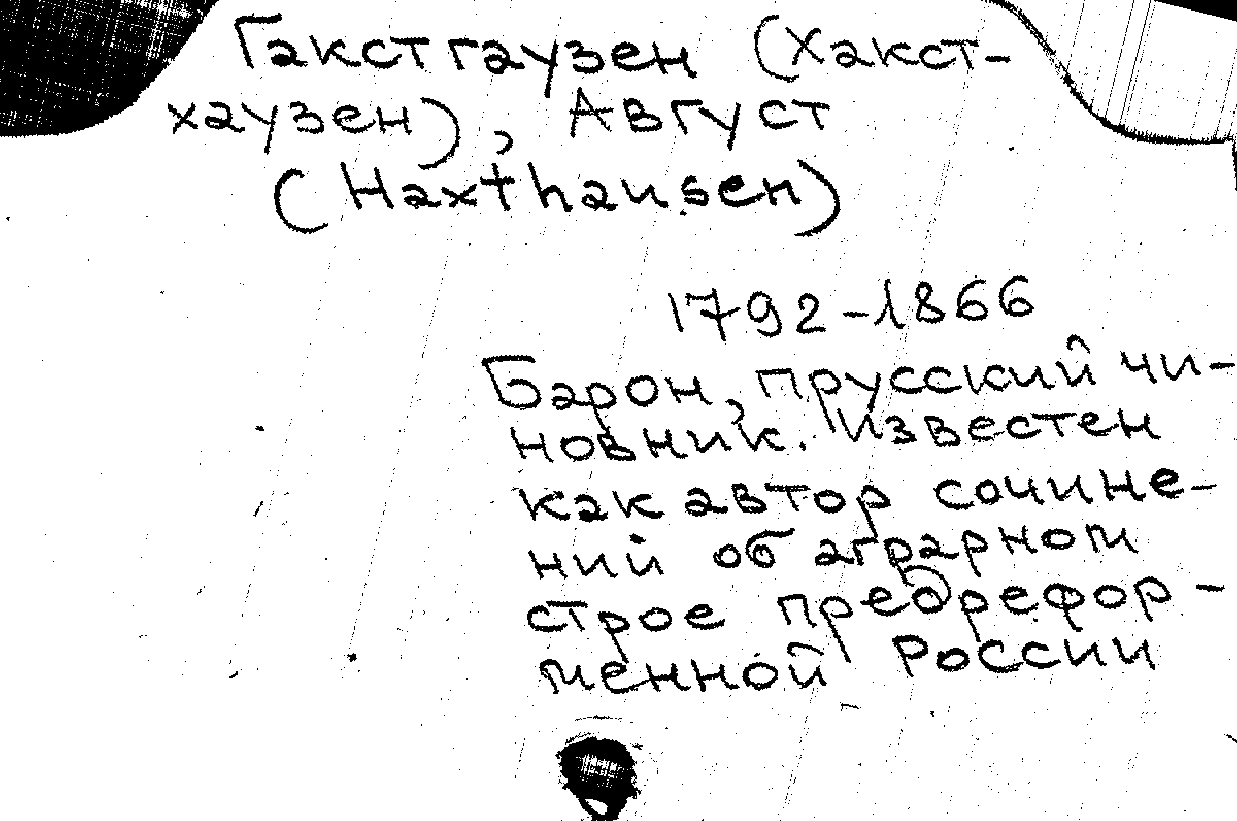 Гакстгаузен (Хакст-
хаузен), Август
(Haxthausen)
1792-1866
Барон, прусский чи-
новник. Известен
как автор сочине-
ний об аграрном
строе предрефор-
менной России